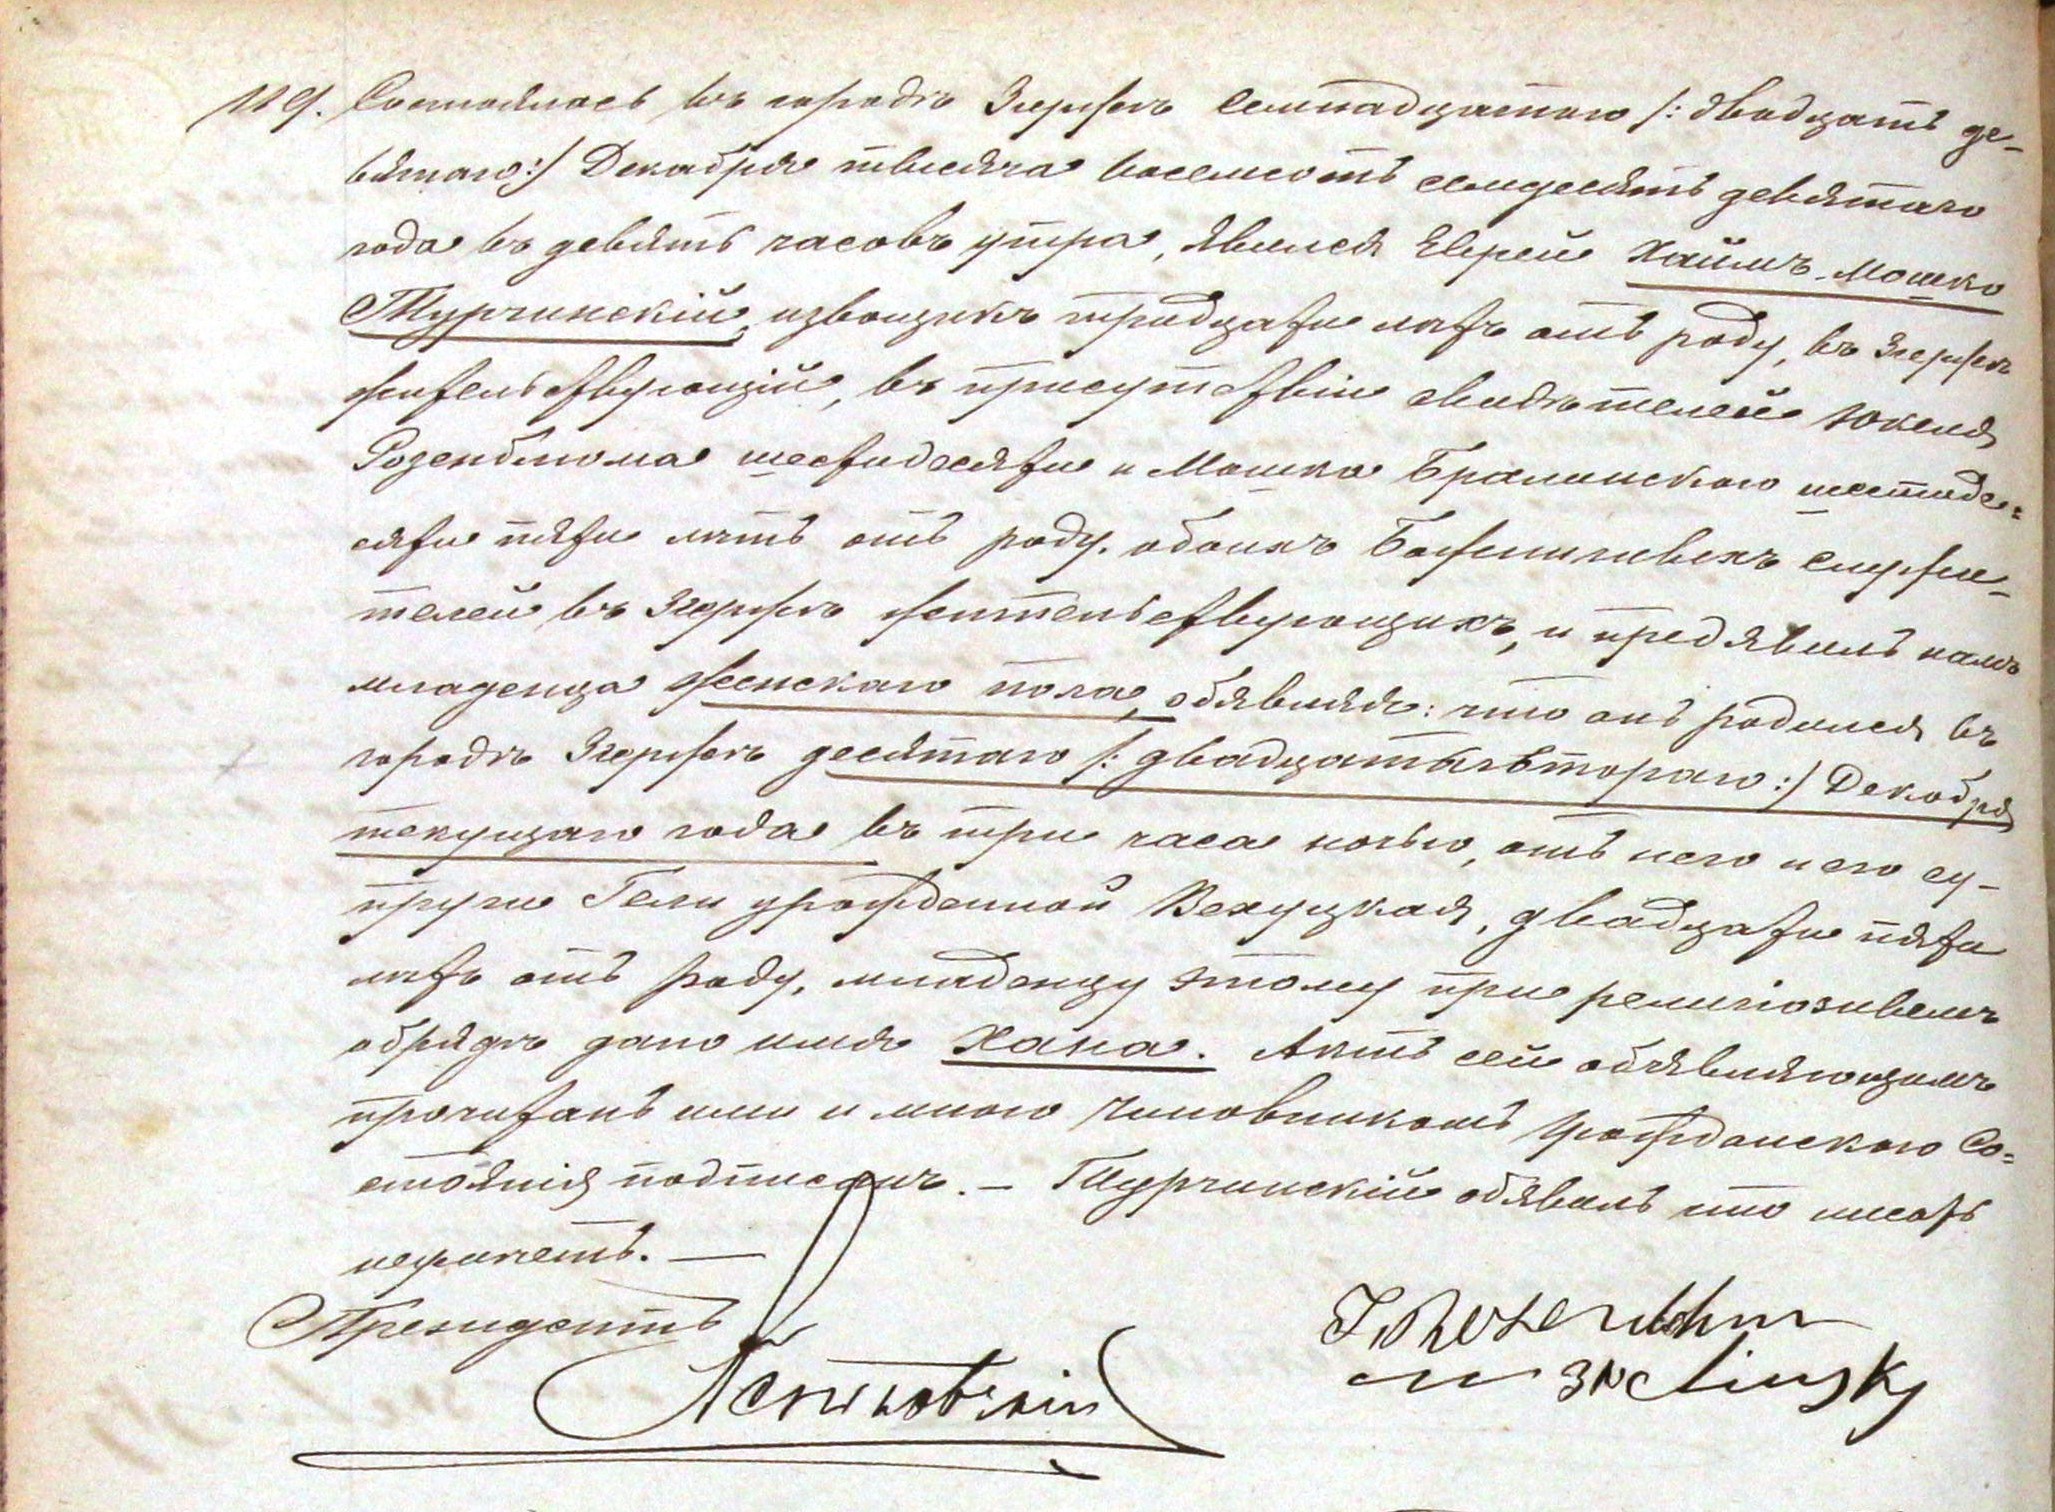 119. Состоялось въ городѣ Згержѣ семнадцатаго /: двадцать де-
вятаго :/ Декабря тысяча восемсотъ семдесятъ девятаго
года въ девять часовъ утра, явился Еврей Хаимъ-Мошко
Турчинскій, извощикъ тридцати лѣтъ отъ роду, въ Згержѣ
жительствующій, въ присутствіи свидѣтелей Юкеля
Розенблюма шестидесяти и Мошка Бралинскаго шестиде=
сяти пяти лѣтъ отъ роду, обоихъ Божничныхъ служи-
телей въ Згержѣ жительствующихъ, и предявилъ намъ
младенца женскаго пола, обявляя: что онъ родился въ
городѣ Згержѣ десятаго /: двадцатьвтораго :/ Декабря
текущаго года въ три часа ночью, отъ него и его су-
пруги Гели урожденной Вехуцкая, двадцати пяти
лѣтъ отъ роду, младенцу этому при религіозныемъ
обрядѣ дано имя Хана. Актъ сей обявляющимъ
прочитанъ ими и мною Чиновникомъ Гражданскаго Со=
стоянія подписанъ. — Турчинскій обявилъ что писать
неумѣетъ. —
Президентъ